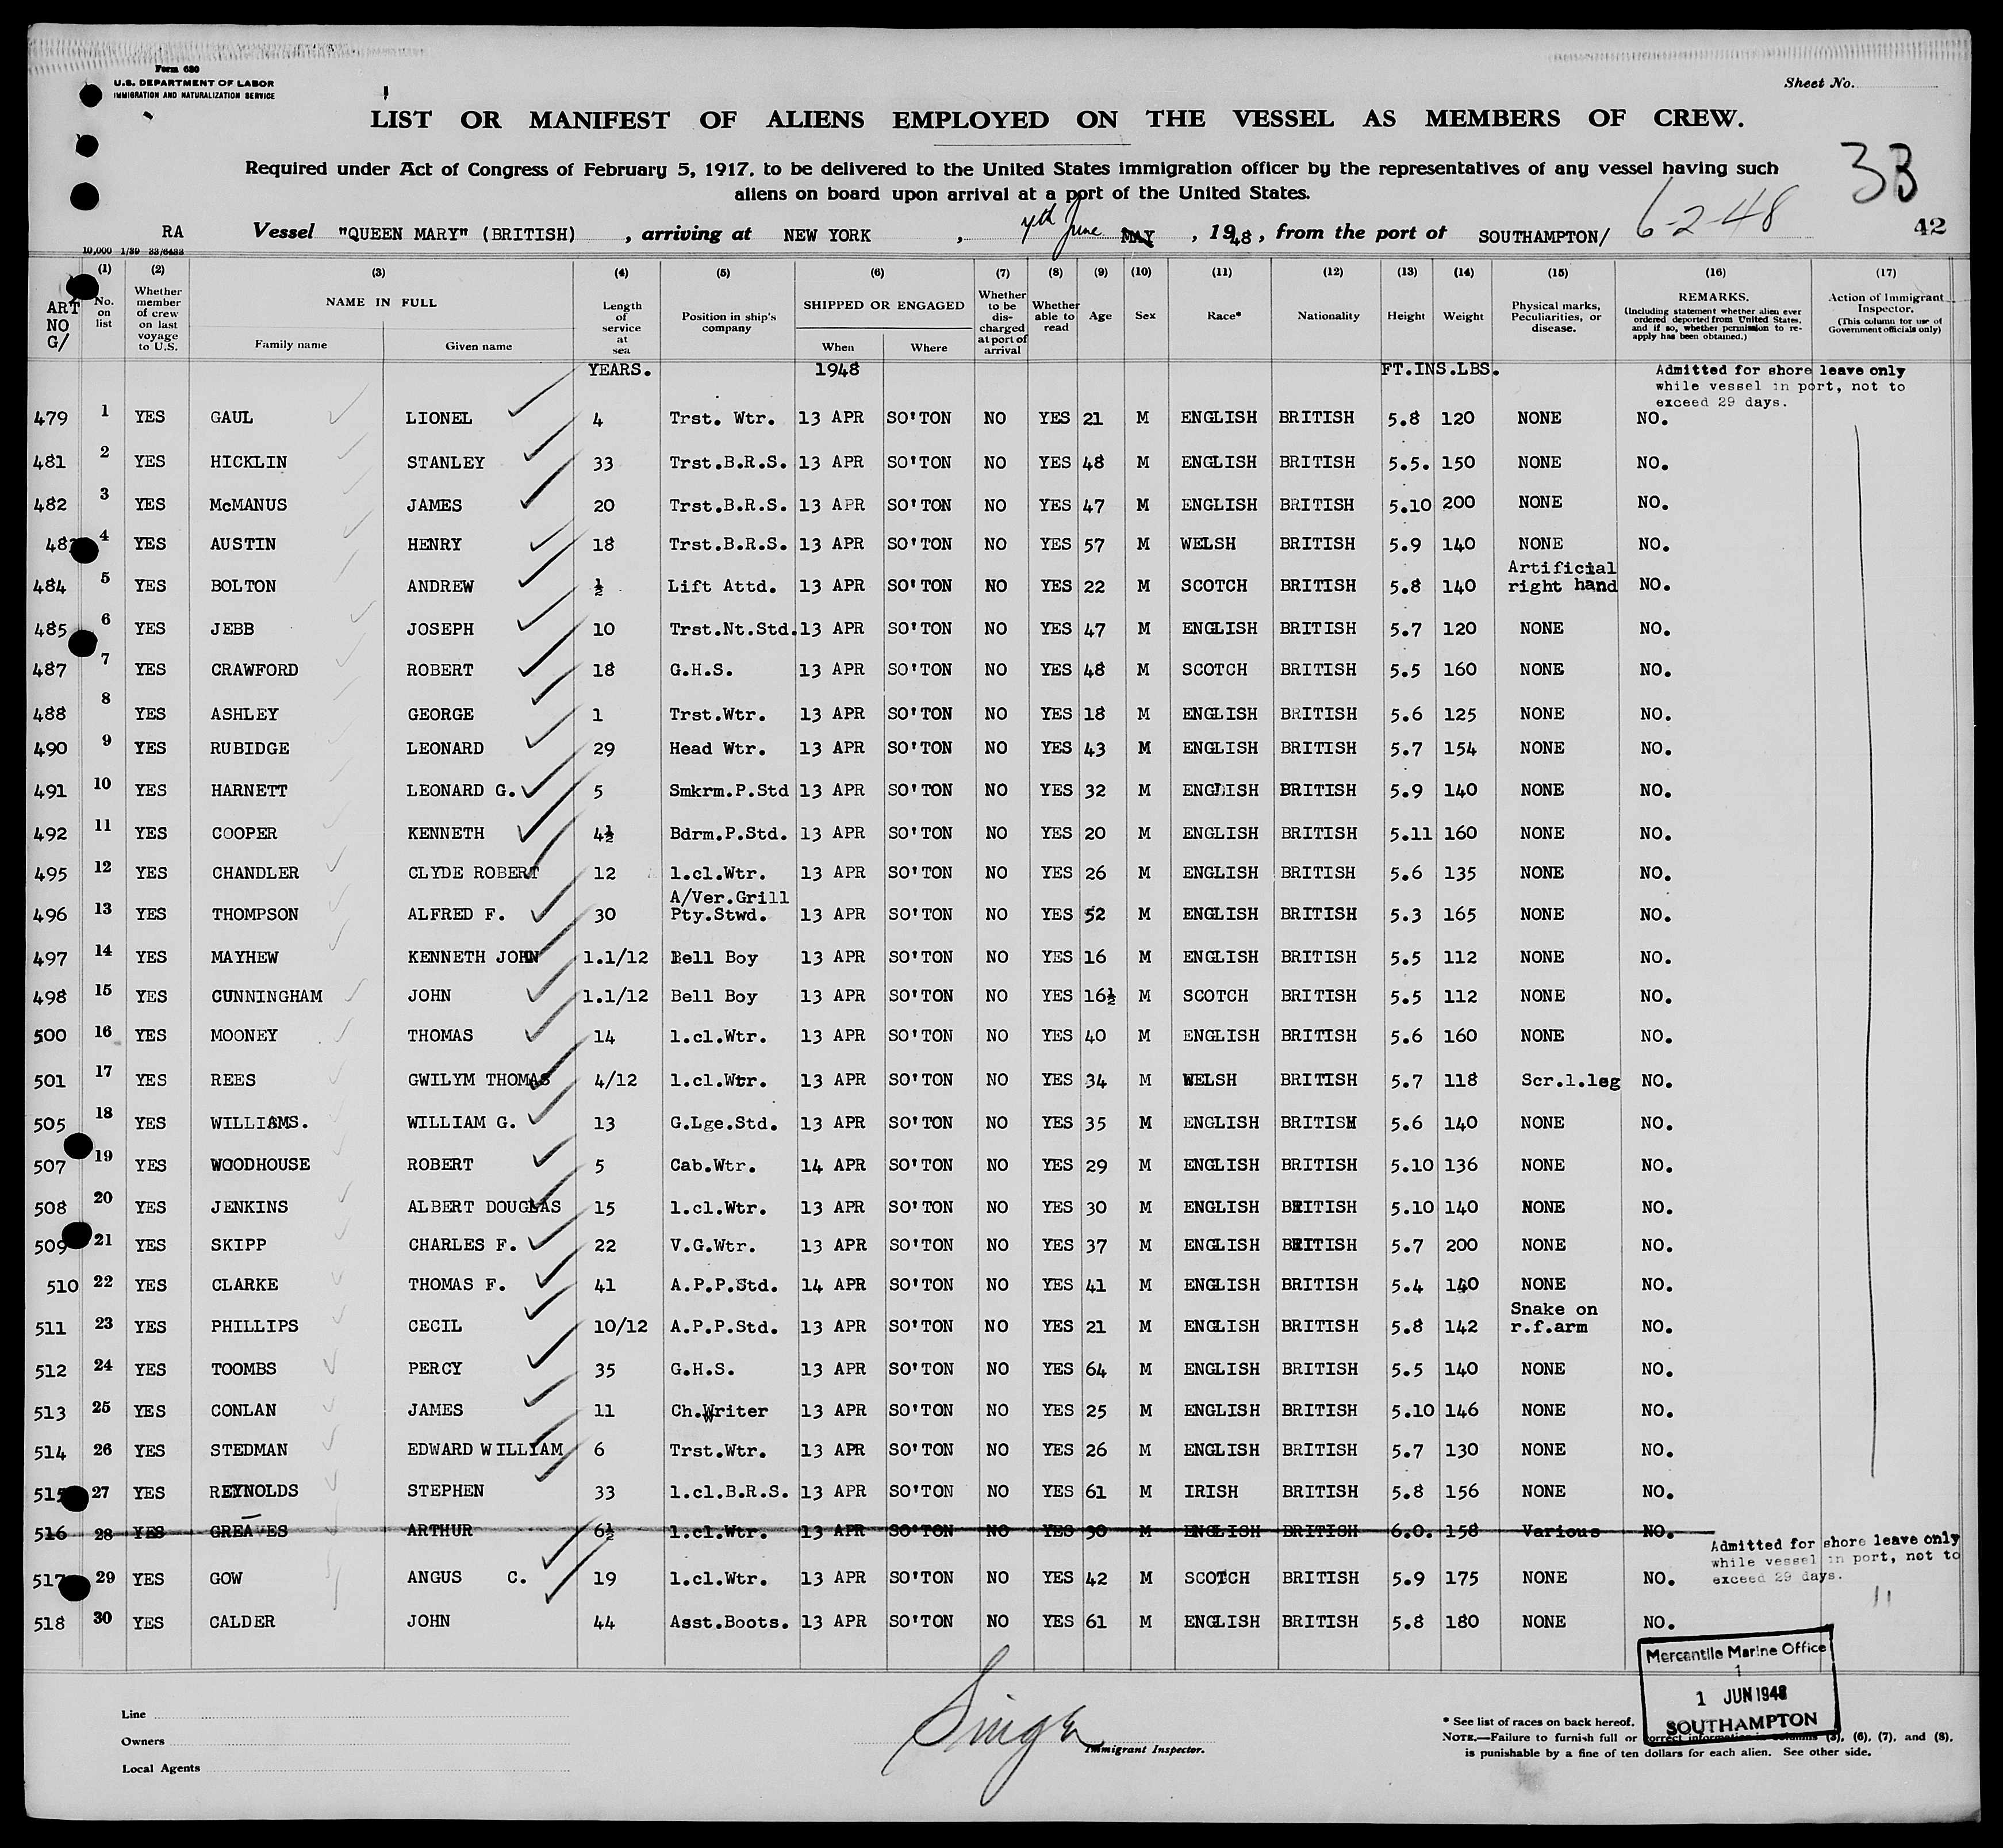 Form 680
U.S. DEPARTMENT OF LABOR
IMMIGRATION AND NATURALIZATION SERVICE
Sheet No.
LIST OR MANIFEST OF ALIENS EMPLOYED ON THE VESSEL AS MEMBERS OF CREW.
Required under Act of Congress of February 5, 1917, to be delivered to the United States immigration officer by the representatives of any vessel having such
aliens on board upon arrival at a port of the United States.
33
42
RA Vessel "QUEEN MARY" (BRITISH) , arriving at NEW YORK , June MAY , 1948 , from the port of SOUTHAMPTON/ 6-2-48
10,000 1/39 33/6433
(1) (2) (3) (4) (5) (6) (7) (8) (9) (10) (11) (12) (13) (14) (15) (16) (17)
ART NO G/ No. on list Whether member of crew on last voyage to U.S. NAME IN FULL Family name Given name Length of service at sea Position in ship's company SHIPPED OR ENGAGED When Where Whether to be discharged at port of arrival Whether able to read Age Sex Race* Nationality Height Weight Physical marks, Peculiarities, or disease. REMARKS. (Including statement whether alien ever ordered deported from United States, and if so, whether permission to re-apply has been obtained.) Action of Immigrant Inspector. (This column for use of Government officials only)
YEARS. 1948 FT.INS.LBS. Admitted for shore leave only
while vessel in port, not to
exceed 29 days.
479 1 YES GAUL LIONEL 4 Trst. Wtr. 13 APR SO'TON NO YES 21 M ENGLISH BRITISH 5.8 120 NONE NO.
481 2 YES HICKLIN STANLEY 33 Trst.B.R.S. 13 APR SO'TON NO YES 48 M ENGLISH BRITISH 5.5. 150 NONE NO.
482 3 YES McMANUS JAMES 20 Trst.B.R.S. 13 APR SO'TON NO YES 47 M ENGLISH BRITISH 5.10 200 NONE NO.
483 4 YES AUSTIN HENRY 18 Trst.B.R.S. 13 APR SO'TON NO YES 57 M WELSH BRITISH 5.9 140 NONE NO.
484 5 YES BOLTON ANDREW ½ Lift Attd. 13 APR SO'TON NO YES 22 M SCOTCH BRITISH 5.8 140 Artificial right hand NO.
485 6 YES JEBB JOSEPH 10 Trst.Nt.Std. 13 APR SO'TON NO YES 47 M ENGLISH BRITISH 5.7 120 NONE NO.
487 7 YES CRAWFORD ROBERT 18 G.H.S. 13 APR SO'TON NO YES 48 M SCOTCH BRITISH 5.5 160 NONE NO.
488 8 YES ASHLEY GEORGE 1 Trst.Wtr. 13 APR SO'TON NO YES 18 M ENGLISH BRITISH 5.6 125 NONE NO.
490 9 YES RUBIDGE LEONARD 29 Head Wtr. 13 APR SO'TON NO YES 43 M ENGLISH BRITISH 5.7 154 NONE NO.
491 10 YES HARNETT LEONARD G. 5 Smkrm.P.Std 13 APR SO'TON NO YES 32 M ENGLISH BRITISH 5.9 140 NONE NO.
492 11 YES COOPER KENNETH 4½ Bdrm.P.Std. 13 APR SO'TON NO YES 20 M ENGLISH BRITISH 5.11 160 NONE NO.
495 12 YES CHANDLER CLYDE ROBERT 12 1.cl.Wtr. 13 APR SO'TON NO YES 26 M ENGLISH BRITISH 5.6 135 NONE NO.
496 13 YES THOMPSON ALFRED F. 30 A/Ver.Grill Pty.Stwd. 13 APR SO'TON NO YES 52 M ENGLISH BRITISH 5.3 165 NONE NO.
497 14 YES MAYHEW KENNETH JOHN 1.1/12 Bell Boy 13 APR SO'TON NO YES 16 M ENGLISH BRITISH 5.5 112 NONE NO.
498 15 YES CUNNINGHAM JOHN 1.1/12 Bell Boy 13 APR SO'TON NO YES 16½ M SCOTCH BRITISH 5.5 112 NONE NO.
500 16 YES MOONEY THOMAS 14 1.cl.Wtr. 13 APR SO'TON NO YES 40 M ENGLISH BRITISH 5.6 160 NONE NO.
501 17 YES REES GWILYM THOMAS 4/12 1.cl.Wtr. 13 APR SO'TON NO YES 34 M WELSH BRITISH 5.7 118 Scr.l.leg NO.
505 18 YES WILLIAMS. WILLIAM G. 13 G.Lge.Std. 13 APR SO'TON NO YES 35 M ENGLISH BRITISH 5.6 140 NONE NO.
507 19 YES WOODHOUSE ROBERT 5 Cab.Wtr. 14 APR SO'TON NO YES 29 M ENGLISH BRITISH 5.10 136 NONE NO.
508 20 YES JENKINS ALBERT DOUGLAS 15 1.cl.Wtr. 13 APR SO'TON NO YES 30 M ENGLISH BRITISH 5.10 140 NONE NO.
509 21 YES SKIPP CHARLES F. 22 V.G.Wtr. 13 APR SO'TON NO YES 37 M ENGLISH BRITISH 5.7 200 NONE NO.
510 22 YES CLARKE THOMAS F. 41 A.P.P.Std. 14 APR SO'TON NO YES 41 M ENGLISH BRITISH 5.4 140 NONE NO.
511 23 YES PHILLIPS CECIL 10/12 A.P.P.Std. 13 APR SO'TON NO YES 21 M ENGLISH BRITISH 5.8 142 Snake on r.f.arm NO.
512 24 YES TOOMBS PERCY 35 G.H.S. 13 APR SO'TON NO YES 64 M ENGLISH BRITISH 5.5 140 NONE NO.
513 25 YES CONLAN JAMES 11 Ch.Writer 13 APR SO'TON NO YES 25 M ENGLISH BRITISH 5.10 146 NONE NO.
514 26 YES STEDMAN EDWARD WILLIAM 6 Trst.Wtr. 13 APR SO'TON NO YES 26 M ENGLISH BRITISH 5.7 130 NONE NO.
515 27 YES REYNOLDS STEPHEN 33 1.cl.B.R.S. 13 APR SO'TON NO YES 61 M IRISH BRITISH 5.8 156 NONE NO.
516 28 YES GREAVES ARTHUR 6½ 1.cl.Wtr. 13 APR SO'TON NO YES 30 M ENGLISH BRITISH 6.0. 158 Various NO.
Admitted for shore leave only
while vessel in port, not to
exceed 29 days.
517 29 YES GOW ANGUS C. 19 1.cl.Wtr. 13 APR SO'TON NO YES 42 M SCOTCH BRITISH 5.9 175 NONE NO.
518 30 YES CALDER JOHN 44 Asst.Boots. 13 APR SO'TON NO YES 61 M ENGLISH BRITISH 5.8 180 NONE NO.
Mercantile Marine Office
1 JUN 1948
SOUTHAMPTON
Line
Owners
Local Agents
Immigrant Inspector.
* See list of races on back hereof.
NOTE.—Failure to furnish full or correct information in columns (3), (6), (7), and (8),
is punishable by a fine of ten dollars for each alien. See other side.